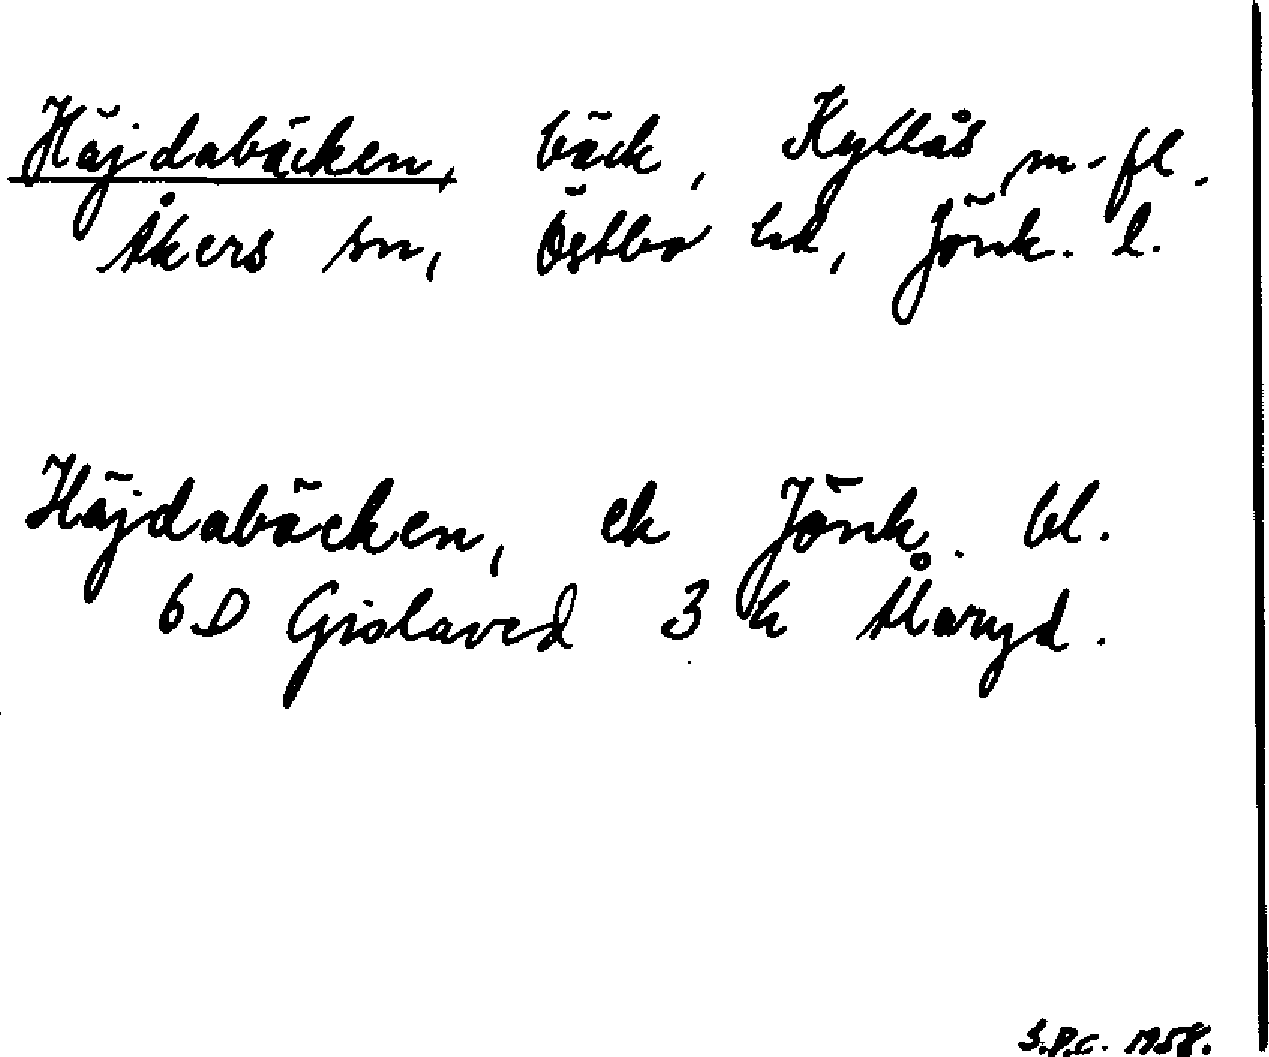 Häjdabäcken, bäck, Kyllås m. fl.
Åkers sn, Östbo hd, Jönk. l.
Häjdabäcken, ek Jönk. bl.
6D Gislaved 3 h Ålaryd.
S.P.C. 1958.